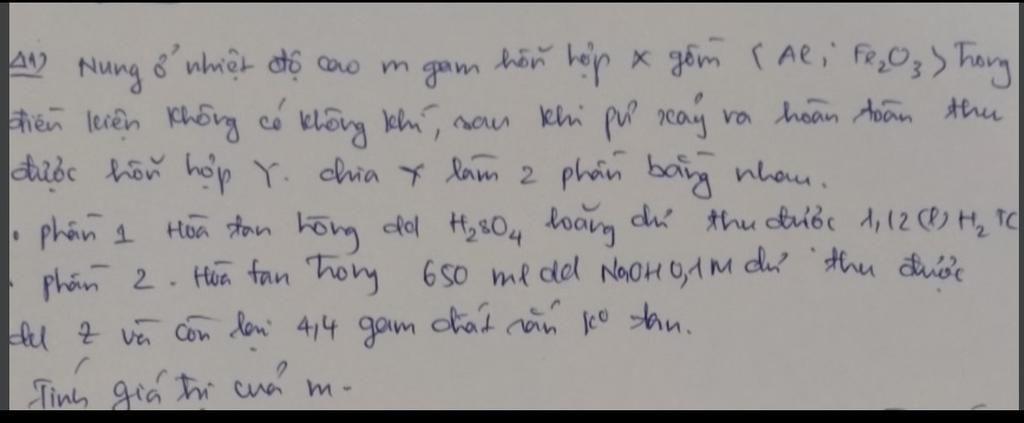 A1) Nung ở nhiệt độ cao m gam hỗn hợp X gồm (Al; Fe2O3) Trong
điều kiện không có không khí, sau khi pứ xảy ra hoàn toàn thu
được hỗn hợp Y. chia Y làm 2 phần bằng nhau.
• phần 1 Hoà tan trong dd H2SO4 loãng dư thu được 1,12 (l) H2 ↑C
• phần 2. Hoà tan Trong 650 ml dd NaOH 0,1M dư thu được
dd Z và còn lại 4,4 gam chất rắn ko tan.
Tính giá trị của m.